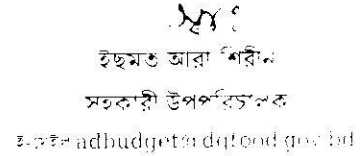 ইছমত আরা শিরীন
সহকারী উপপরিচালক
ই-মেইল adbudget@dgfood.gov.bd